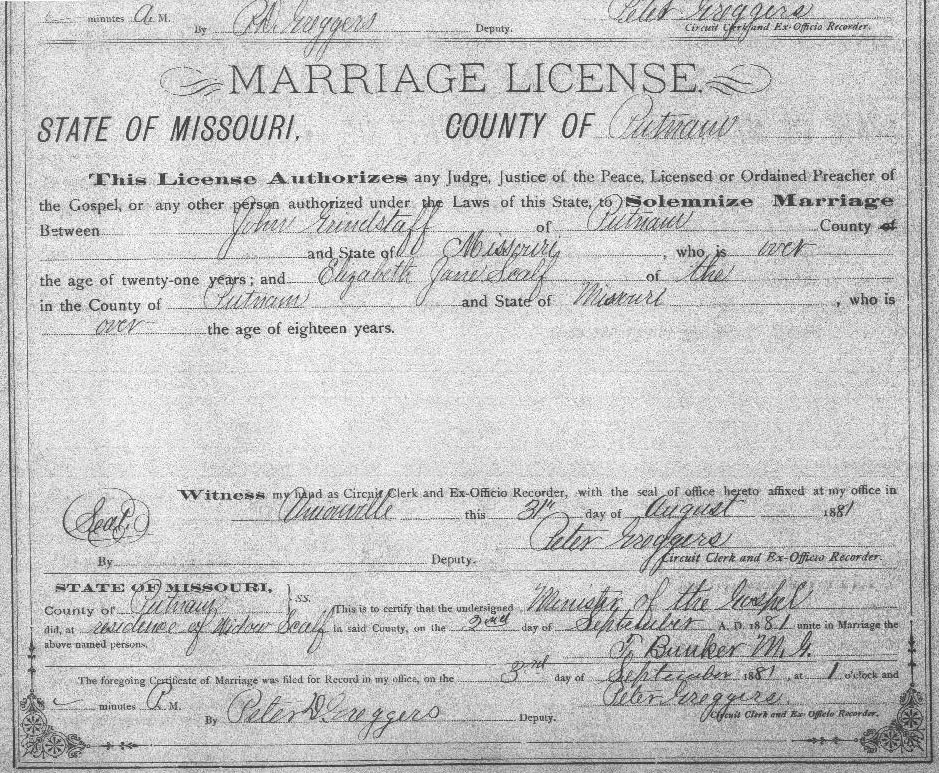 minutes A. M.
By P.D. Greggers Deputy. Peter Greggers
Circuit Clerk and Ex-Officio Recorder.
MARRIAGE LICENSE.
STATE OF MISSOURI, COUNTY OF Putnam
This License Authorizes any Judge, Justice of the Peace, Licensed or Ordained Preacher of
the Gospel, or any other person authorized under the Laws of this State, to Solemnize Marriage
Between John Grindstaff of Putnam County of
and State of Missouri, who is over
the age of twenty-one years; and Elizabeth Jane Scalf of the
in the County of Putnam and State of Missouri, who is
over the age of eighteen years.
Witness my hand as Circuit Clerk and Ex-Officio Recorder, with the seal of office hereto affixed at my office in
Seal Unionville this 31st day of August 1881
Peter Greggers
By Deputy. Circuit Clerk and Ex-Officio Recorder.
STATE OF MISSOURI,
County of Putnam ss. This is to certify that the undersigned Minister of the Gospel
did, at residence of Widow Scalf in said County, on the 2nd day of September A. D. 1881 unite in Marriage the
above named persons. Bunker M.G.
The foregoing Certificate of Marriage was filed for Record in my office, on the 3rd day of September 1881, at 1 o'clock and
minutes P. M. Peter Greggers.
By Peter D. Greggers Deputy. Circuit Clerk and Ex-Officio Recorder.